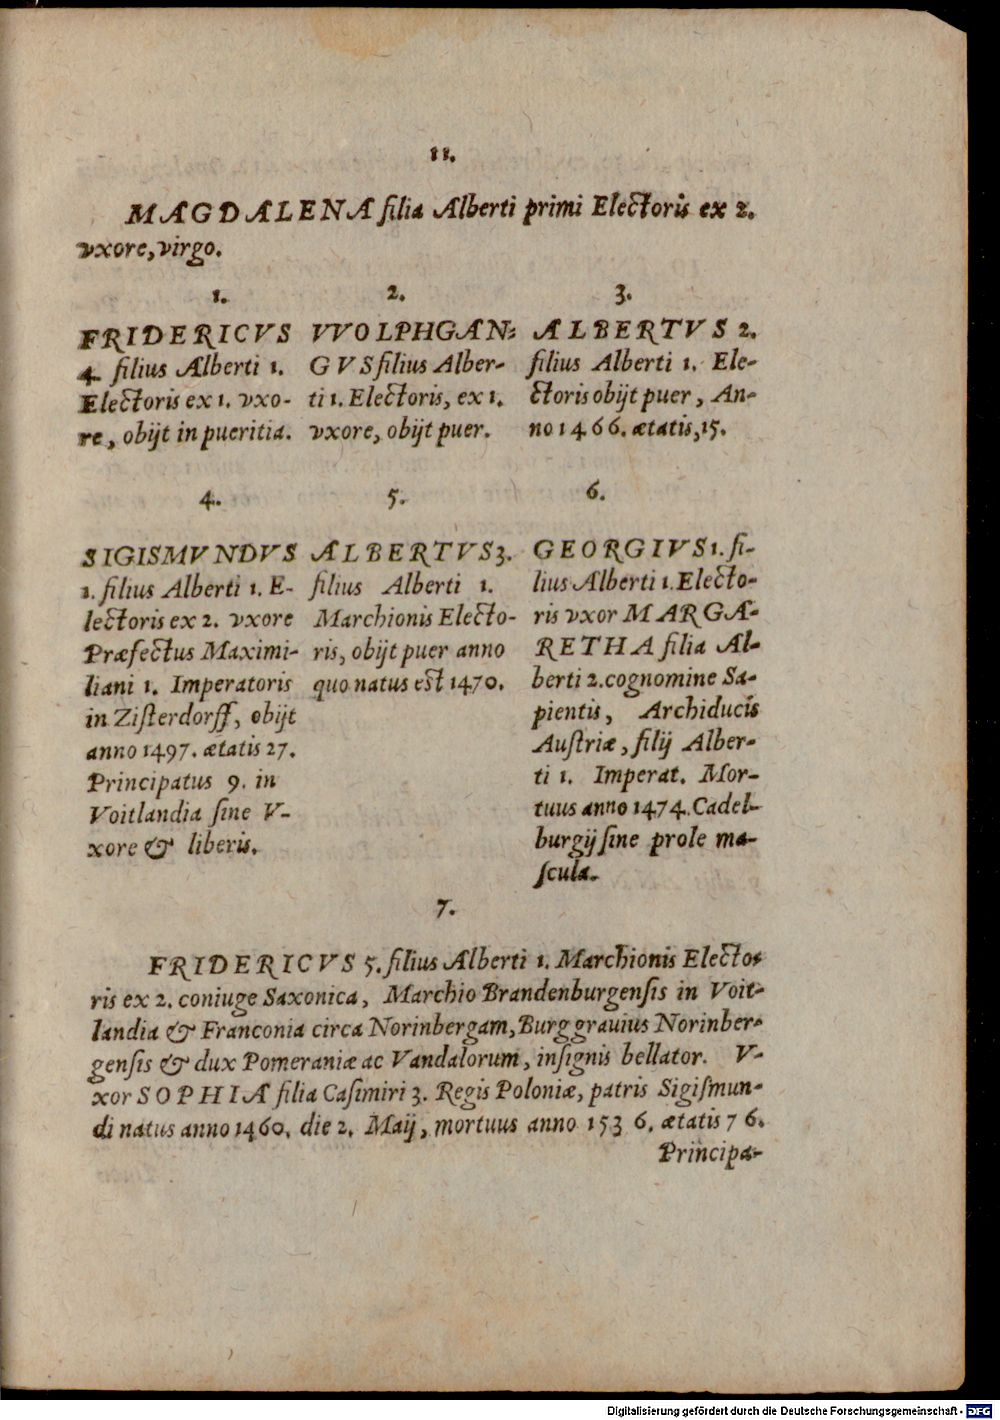 11.
MAGDALENA filia Alberti primi Electoris ex 2.
vxore, virgo.
1.
FRIDERICVS
4. filius Alberti 1.
Electoris ex 1. vxo-
re, obijt in pueritia.
2.
VVOLPHGAN:
GVS filius Alber-
ti 1. Electoris, ex 1.
vxore, obijt puer.
3.
ALBERTVS 2.
filius Alberti 1. Ele-
ctoris obijt puer, An-
no 1466. ætatis, 15.
4.
SIGISMVNDVS
1. filius Alberti 1. E-
lectoris ex 2. vxore
Præfectus Maximi-
liani 1. Imperatoris
in Zisterdorff, obijt
anno 1497. ætatis 27.
Principatus 9. in
Voitlandia sine V-
xore & liberis.
5.
ALBERTVS 3.
filius Alberti 1.
Marchionis Electo-
ris, obijt puer anno
quo natus est 1470.
6.
GEORGIVS 1. fi-
lius Alberti 1. Electo-
ris vxor MARGA-
RETHA filia Al-
berti 2. cognomine Sa-
pientis, Archiducis
Austriæ, filij Alber-
ti 1. Imperat. Mor-
tuus anno 1474. Cadel-
burgij sine prole ma-
scula.
7.
FRIDERICVS 5. filius Alberti 1. Marchionis Electo-
ris ex 2. coniuge Saxonica, Marchio Brandenburgensis in Voit-
landia & Franconia circa Norinbergam, Burggrauius Norinber-
gensis & dux Pomeraniæ ac Vandalorum, insignis bellator. V-
xor SOPHIA filia Casimiri 3. Regis Poloniæ, patris Sigismun-
di natus anno 1460. die 2. Maij, mortuus anno 1536. ætatis 76.
Principa-
Digitalisierung gefördert durch die Deutsche Forschungsgemeinschaft - DFG